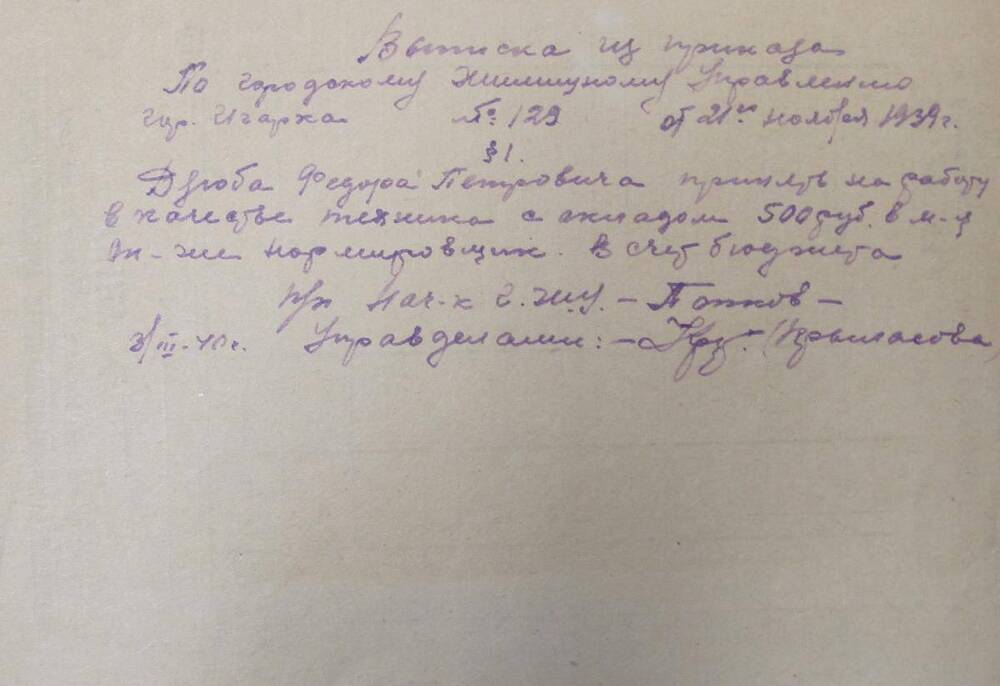 Выписка из приказа
По городскому Жилищному Управлению
гор. Игарка № 129 от 21го ноября 1939 г.
§ 1.
Дзюба Федора Петровича принять на работу
в качестве техника с окладом 500 руб. в м-ц
он-же нормировщик. В счет бюджета
Нач-к Г.Ж.У. – Попков –
3/III-40 г. Управделами: – (Крыласова)